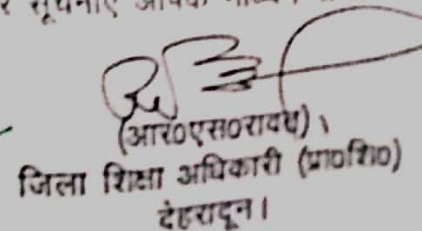 र सूचनाएं आपके
(आर०एस०रावत)।
जिला शिक्षा अधिकारी (प्रा०शि०)
देहरादून।